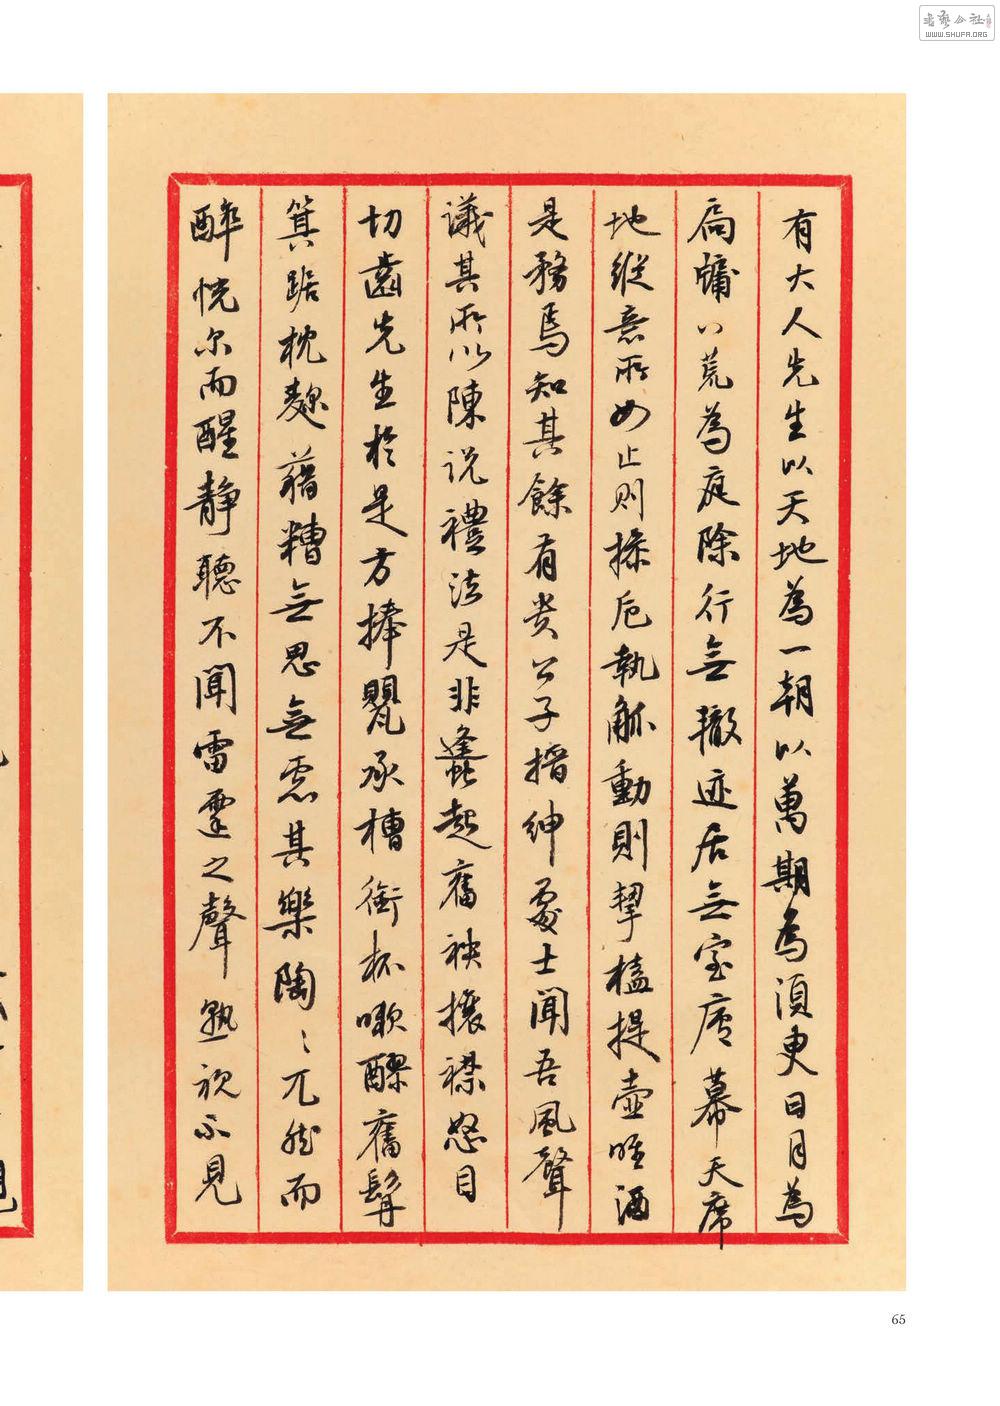 有大人先生以天地為一朝以萬期為須臾日月為
扃牖八荒為庭除行無轍迹居無室廬幕天席
地縱意所如止則操卮執觚動則挈榼提壺唯酒
是務焉知其餘有貴公子搢紳處士聞吾風聲
議其所以陳說禮法是非蜂起奮袂攘襟怒目
切齒先生於是方捧甖承槽銜杯嗽醪奮髯
箕踞枕麴藉糟無思無慮其樂陶〻兀然而
醉恍尔而醒静聽不聞雷霆之聲熟視不見
書藝公社
WWW.SHUFA.ORG
65